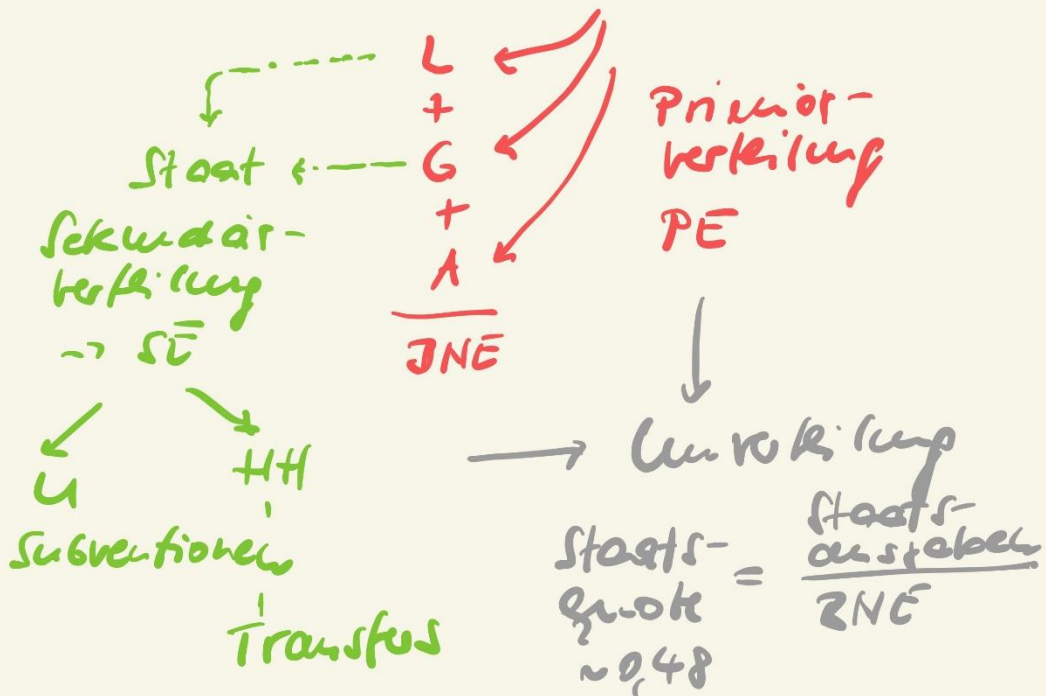 L
+
G
+
A
INE
Primär-
verteilung
PE
Staat
Sekundär-
verteilung
-> SE
U
HH
Subventionen
Transfers
Umverteilung
Staats-
quote
~0,48
=
Staats-
ausgaben
BNE